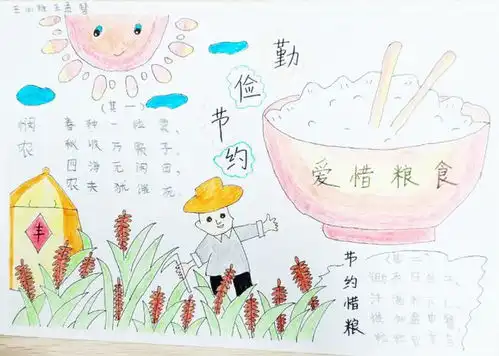 勤俭节约
爱惜粮食
悯农
(其一)
春种一粒粟,
秋收万颗子。
四海无闲田,
农夫犹饿死。
丰
节约惜粮
(其二)
锄禾日当午,
汗滴禾下土。
粒粒皆辛苦